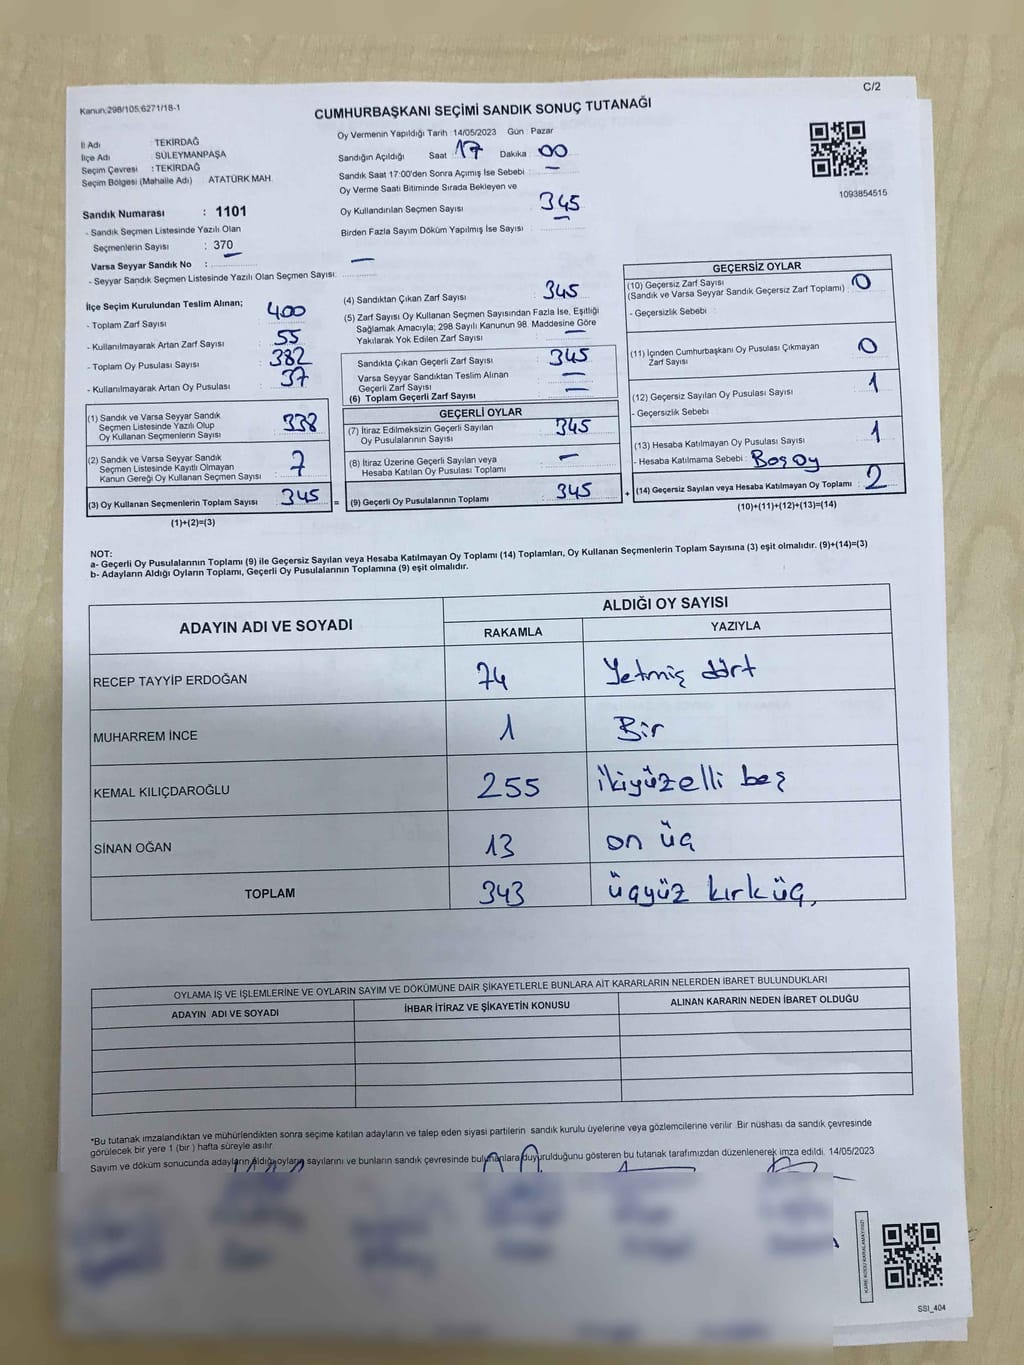 C/2
Kanun:298/105,6271/18-1
CUMHURBAŞKANI SEÇİMİ SANDIK SONUÇ TUTANAĞI
İl Adı : TEKİRDAĞ
İlçe Adı : SÜLEYMANPAŞA
Seçim Çevresi : TEKİRDAĞ
Seçim Bölgesi (Mahalle Adı) : ATATÜRK MAH.
Sandık Numarası : 1101
- Sandık Seçmen Listesinde Yazılı Olan
Seçmenlerin Sayısı : 370
Varsa Seyyar Sandık No : —
- Seyyar Sandık Seçmen Listesinde Yazılı Olan Seçmen Sayısı:
Oy Vermenin Yapıldığı Tarih : 14/05/2023 Gün : Pazar
Sandığın Açıldığı Saat : 17 Dakika : 00
Sandık Saat 17:00'den Sonra Açımış İse Sebebi : —
Oy Verme Saati Bitiminde Sırada Bekleyen ve
Oy Kullandırılan Seçmen Sayısı : 345
Birden Fazla Sayım Döküm Yapılmış İse Sayısı : —
1093854515
İlçe Seçim Kurulundan Teslim Alınan;
- Toplam Zarf Sayısı : 400
- Kullanılmayarak Artan Zarf Sayısı : 55
- Toplam Oy Pusulası Sayısı : 382
- Kullanılmayarak Artan Oy Pusulası : 37
(1) Sandık ve Varsa Seyyar Sandık
Seçmen Listesinde Yazılı Olup
Oy Kullanan Seçmenlerin Sayısı : 338
(2) Sandık ve Varsa Seyyar Sandık
Seçmen Listesinde Kayıtlı Olmayan
Kanun Gereği Oy Kullanan Seçmen Sayısı : 7
(3) Oy Kullanan Seçmenlerin Toplam Sayısı : 345 =
(1)+(2)=(3)
(4) Sandıktan Çıkan Zarf Sayısı : 345
(5) Zarf Sayısı Oy Kullanan Seçmen Sayısından Fazla İse, Eşitliği
Sağlamak Amacıyla; 298 Sayılı Kanunun 98. Maddesine Göre
Yakılarak Yok Edilen Zarf Sayısı : —
Sandıkta Çıkan Geçerli Zarf Sayısı : 345
Varsa Seyyar Sandıktan Teslim Alınan
Geçerli Zarf Sayısı : —
(6) Toplam Geçerli Zarf Sayısı : —
GEÇERLİ OYLAR
(7) İtiraz Edilmeksizin Geçerli Sayılan
Oy Pusulalarının Sayısı : 345
(8) İtiraz Üzerine Geçerli Sayılan veya
Hesaba Katılan Oy Pusulası Toplamı : —
(9) Geçerli Oy Pusulalarının Toplamı : 345 +
GEÇERSİZ OYLAR
(10) Geçersiz Zarf Sayısı
(Sandık ve Varsa Seyyar Sandık Geçersiz Zarf Toplamı) : 0
- Geçersizlik Sebebi :
(11) İçinden Cumhurbaşkanı Oy Pusulası Çıkmayan
Zarf Sayısı : 0
(12) Geçersiz Sayılan Oy Pusulası Sayısı : 1
- Geçersizlik Sebebi :
(13) Hesaba Katılmayan Oy Pusulası Sayısı : 1
- Hesaba Katılmama Sebebi : Boş oy
(14) Geçersiz Sayılan veya Hesaba Katılmayan Oy Toplamı : 2
(10)+(11)+(12)+(13)=(14)
NOT:
a- Geçerli Oy Pusulalarının Toplamı (9) ile Geçersiz Sayılan veya Hesaba Katılmayan Oy Toplamı (14) Toplamları, Oy Kullanan Seçmenlerin Toplam Sayısına (3) eşit olmalıdır. (9)+(14)=(3)
b- Adayların Aldığı Oyların Toplamı, Geçerli Oy Pusulalarının Toplamına (9) eşit olmalıdır.
ADAYIN ADI VE SOYADI ALDIĞI OY SAYISI
RAKAMLA YAZIYLA
RECEP TAYYİP ERDOĞAN 74 Yetmiş dört
MUHARREM İNCE 1 Bir
KEMAL KILIÇDAROĞLU 255 ikiyüzelli beş
SİNAN OĞAN 13 on üç
TOPLAM 343 üçyüz kırküç,
OYLAMA İŞ VE İŞLEMLERİNE VE OYLARIN SAYIM VE DÖKÜMÜNE DAİR ŞİKAYETLERLE BUNLARA AİT KARARLARIN NELERDEN İBARET BULUNDUKLARI
ADAYIN ADI VE SOYADI İHBAR İTİRAZ VE ŞİKAYETİN KONUSU ALINAN KARARIN NEDEN İBARET OLDUĞU
*Bu tutanak imzalandıktan ve mühürlendikten sonra seçime katılan adayların ve talep eden siyasi partilerin sandık kurulu üyelerine veya gözlemcilerine verilir. Bir nüshası da sandık çevresinde
görülecek bir yere 1 (bir) hafta süreyle asılır.
Sayım ve döküm sonucunda adayların aldığı oyların sayılarını ve bunların sandık çevresinde bulunanlara duyurulduğunu gösteren bu tutanak tarafımızdan düzenlenerek imza edildi. 14/05/2023
KARE KODU KARALAMAYINIZ!
SSI_404